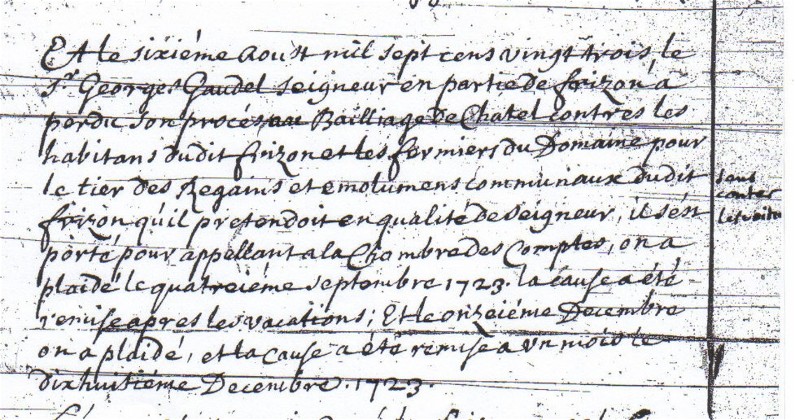 Et le sixiéme Aoust mil sept cens vingt trois, le
Sr. Georges Gaudel Seigneur en partie de frizon a
perdu son procés au Bailliage de Châtel contres les
habitans dudit frizon et les fermiers du Domaine pour
le tier des Regains et emolumens communaux dudit
frizon qu'il pretendoit en qualité de Seigneur, il s'est
porté pour appellant a la Chambre des Comptes, on a
plaidé le quatreiéme septembre 1723. la cause a été
remise apres les vacations; Et le onzeiéme Decembre
on a plaidé, et la cause a été remise a un mois le
dixhuitiéme Decembre. 1723.
sans
conter